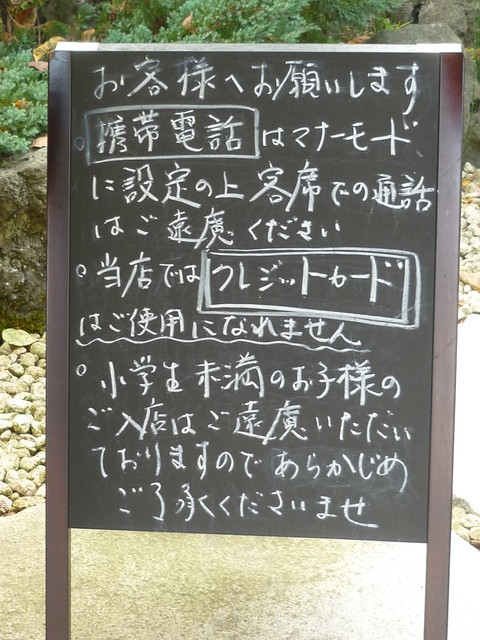 お客様へお願いします
○携帯電話はマナーモード
に設定の上客席での通話
はご遠慮ください
○当店ではクレジットカード
はご使用になれません
○小学生未満のお子様の
ご入店はご遠慮いただい
ておりますのであらかじめ
ご了承くださいませ